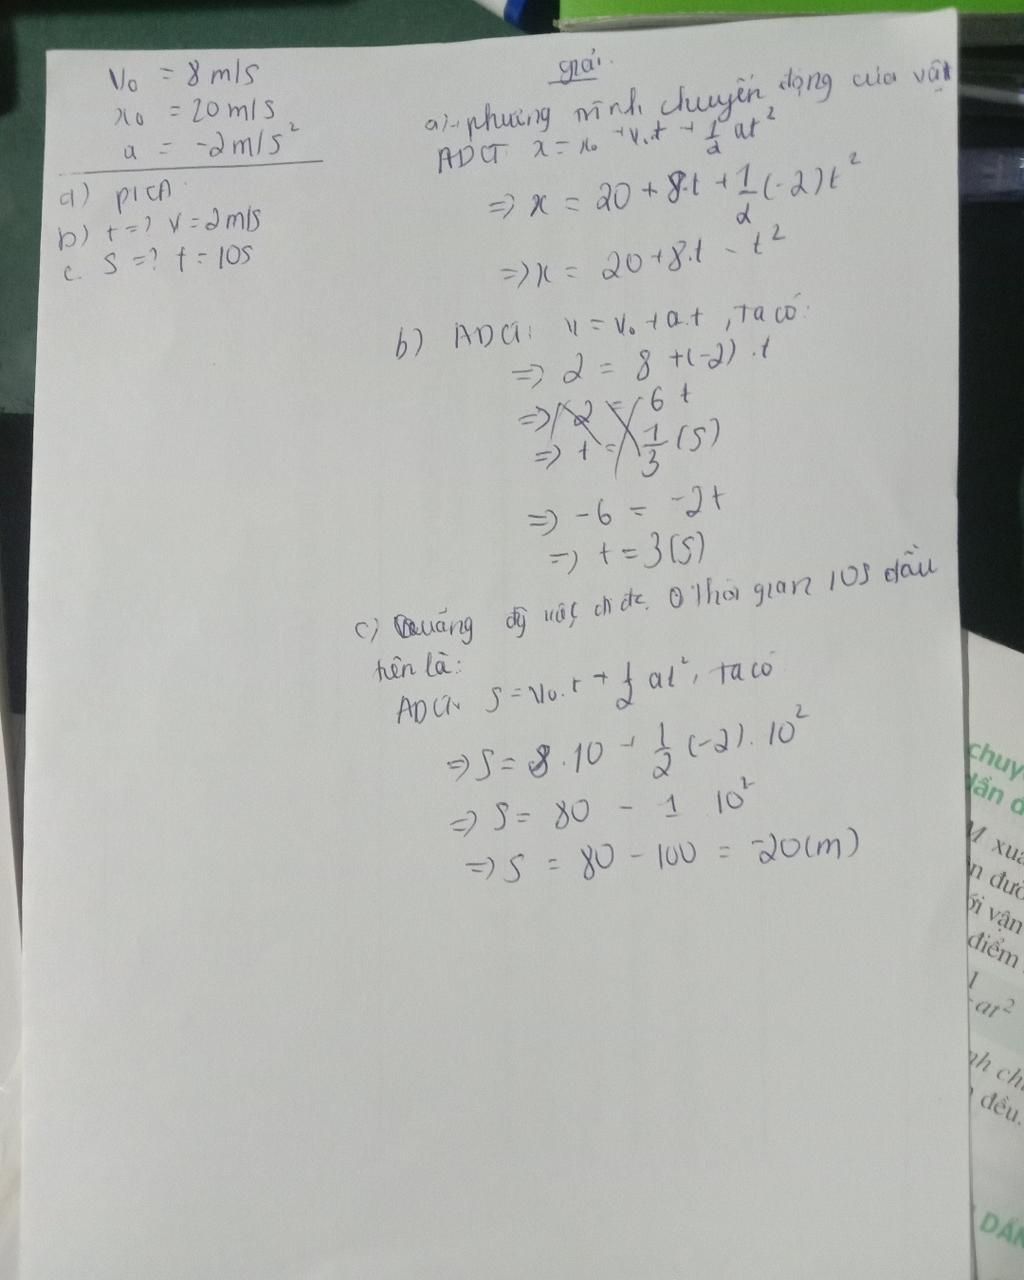 V₀ = 8 m/s
x₀ = 20 m/s
a = -2 m/s²
a) PTCĐ
b) t = ? V = 2 m/s
c. S = ? t = 10s
giải.
a) phương trình chuyển động của vật
ADCT x = x₀ + v₀.t + 1/2 at²
=> x = 20 + 8.t + 1/2 (-2) t²
=> x = 20 + 8.t - t²
b) ADCT: v = v₀ + a.t, ta có:
=> 2 = 8 + (-2) . t
=> 2 = 6 t
=> t = 1/3 (s)
=> -6 = -2t
=> t = 3 (s)
c) Quãng đg vật đi đc. thời gian 10s đầu
tiên là:
ADCT S = V₀.t + 1/2 at², ta có
=> S = 8 . 10 + 1/2 (-2) . 10²
=> S = 80 - 1 10²
=> S = 80 - 100 = -20 (m)
dần đ
M xuấ
điểm
at²
đều.
DẦN